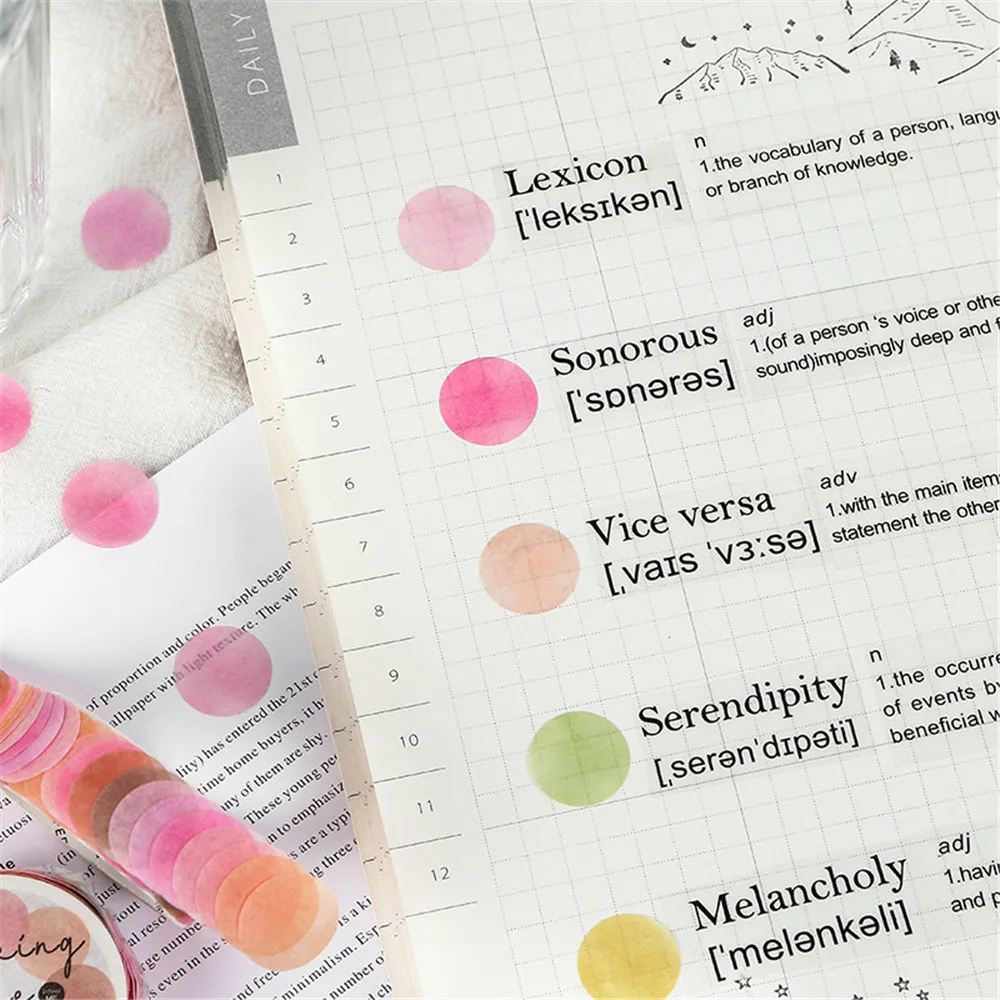 DAILY
1
2
3
4
5
6
7
8
9
10
11
12
Lexicon
['leksɪkən]
n
1.the vocabulary of a person, langu
or branch of knowledge.
Sonorous
['sɒnərəs]
adj
1.(of a person 's voice or othe
sound)imposingly deep and f
Vice versa
[ˌvaɪs 'vɜːsə]
adv
1.with the main item
statement the other
Serendipity
[ˌserən'dɪpəti]
n
1.the occurre
of events by
beneficial w
Melancholy
['melənkəli]
adj
1.havin
and p
of proportion and color. People began
allpaper with light texture. The wh
ality) has entered the 21st c
time home buyers, it h
ny of them are shy.
These young pe
on to emphasiz
s are a typi
three c
is a ki
minimalism. Esp
number of book
king